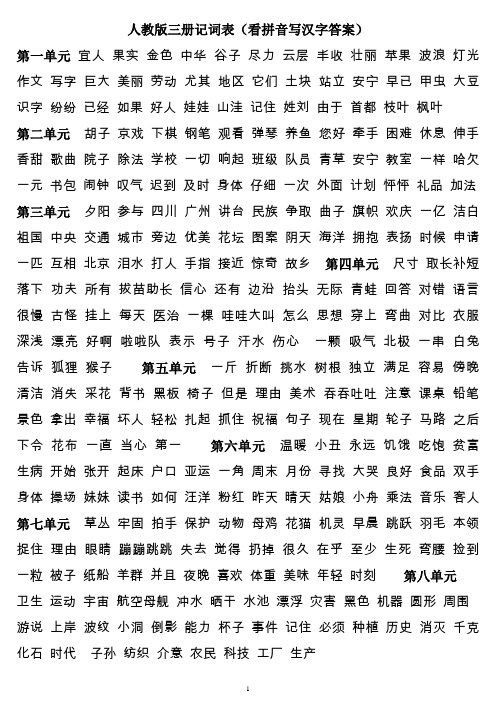 人教版三册记词表（看拼音写汉字答案）
第一单元 宜人 果实 金色 中华 谷子 尽力 云层 丰收 壮丽 苹果 波浪 灯光
作文 写字 巨大 美丽 劳动 尤其 地区 它们 土块 站立 安宁 早已 甲虫 大豆
识字 纷纷 已经 如果 好人 娃娃 山洼 记住 姓刘 由于 首都 枝叶 枫叶
第二单元 胡子 京戏 下棋 钢笔 观看 弹琴 养鱼 您好 牵手 困难 休息 伸手
香甜 歌曲 院子 除法 学校 一切 响起 班级 队员 青草 安宁 教室 一样 哈欠
一元 书包 闹钟 叹气 迟到 及时 身体 仔细 一次 外面 计划 怦怦 礼品 加法
第三单元 夕阳 参与 四川 广州 讲台 民族 争取 曲子 旗帜 欢庆 一亿 洁白
祖国 中央 交通 城市 旁边 优美 花坛 图案 阴天 海洋 拥抱 表扬 时候 申请
一匹 互相 北京 泪水 打人 手指 接近 惊奇 故乡 第四单元 尺寸 取长补短
落下 功夫 所有 拔苗助长 信心 还有 边沿 抬头 无际 青蛙 回答 对错 语言
很慢 古怪 挂上 每天 医治 一棵 哇哇大叫 怎么 思想 穿上 弯曲 对比 衣服
深浅 漂亮 好啊 啦啦队 表示 号子 汗水 伤心 一颗 吸气 北极 一串 白兔
告诉 狐狸 猴子 第五单元 一斤 折断 挑水 树根 独立 满足 容易 傍晚
清洁 消失 采花 背书 黑板 椅子 但是 理由 美术 吞吞吐吐 注意 课桌 铅笔
景色 拿出 幸福 坏人 轻松 扎起 抓住 祝福 句子 现在 星期 轮子 马路 之后
下令 花布 一直 当心 第一 第六单元 温暖 小丑 永远 饥饿 吃饱 贫富
生病 开始 张开 起床 户口 亚运 一角 周末 月份 寻找 大哭 良好 食品 双手
身体 操场 妹妹 读书 如何 汪洋 粉红 昨天 晴天 姑娘 小舟 乘法 音乐 客人
第七单元 草丛 牢固 拍手 保护 动物 母鸡 花猫 机灵 早晨 跳跃 羽毛 本领
捉住 理由 眼睛 蹦蹦跳跳 失去 觉得 扔掉 很久 在乎 至少 生死 弯腰 捡到
一粒 被子 纸船 羊群 并且 夜晚 喜欢 体重 美味 年轻 时刻 第八单元
卫生 运动 宇宙 航空母舰 冲水 晒干 水池 漂浮 灾害 黑色 机器 圆形 周围
游说 上岸 波纹 小洞 倒影 能力 杯子 事件 记住 必须 种植 历史 消灭 千克
化石 时代 子孙 纺织 介意 农民 科技 工厂 生产
1